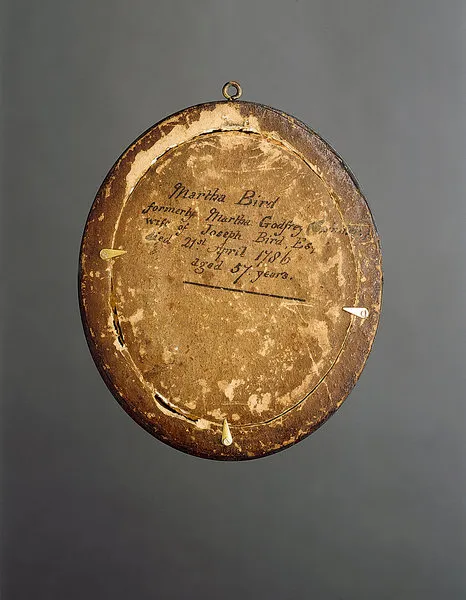 Martha Bird
formerly Martha Godfrey
wife of Joseph Bird, Esq,
died 21st April 1786
aged 57 years.